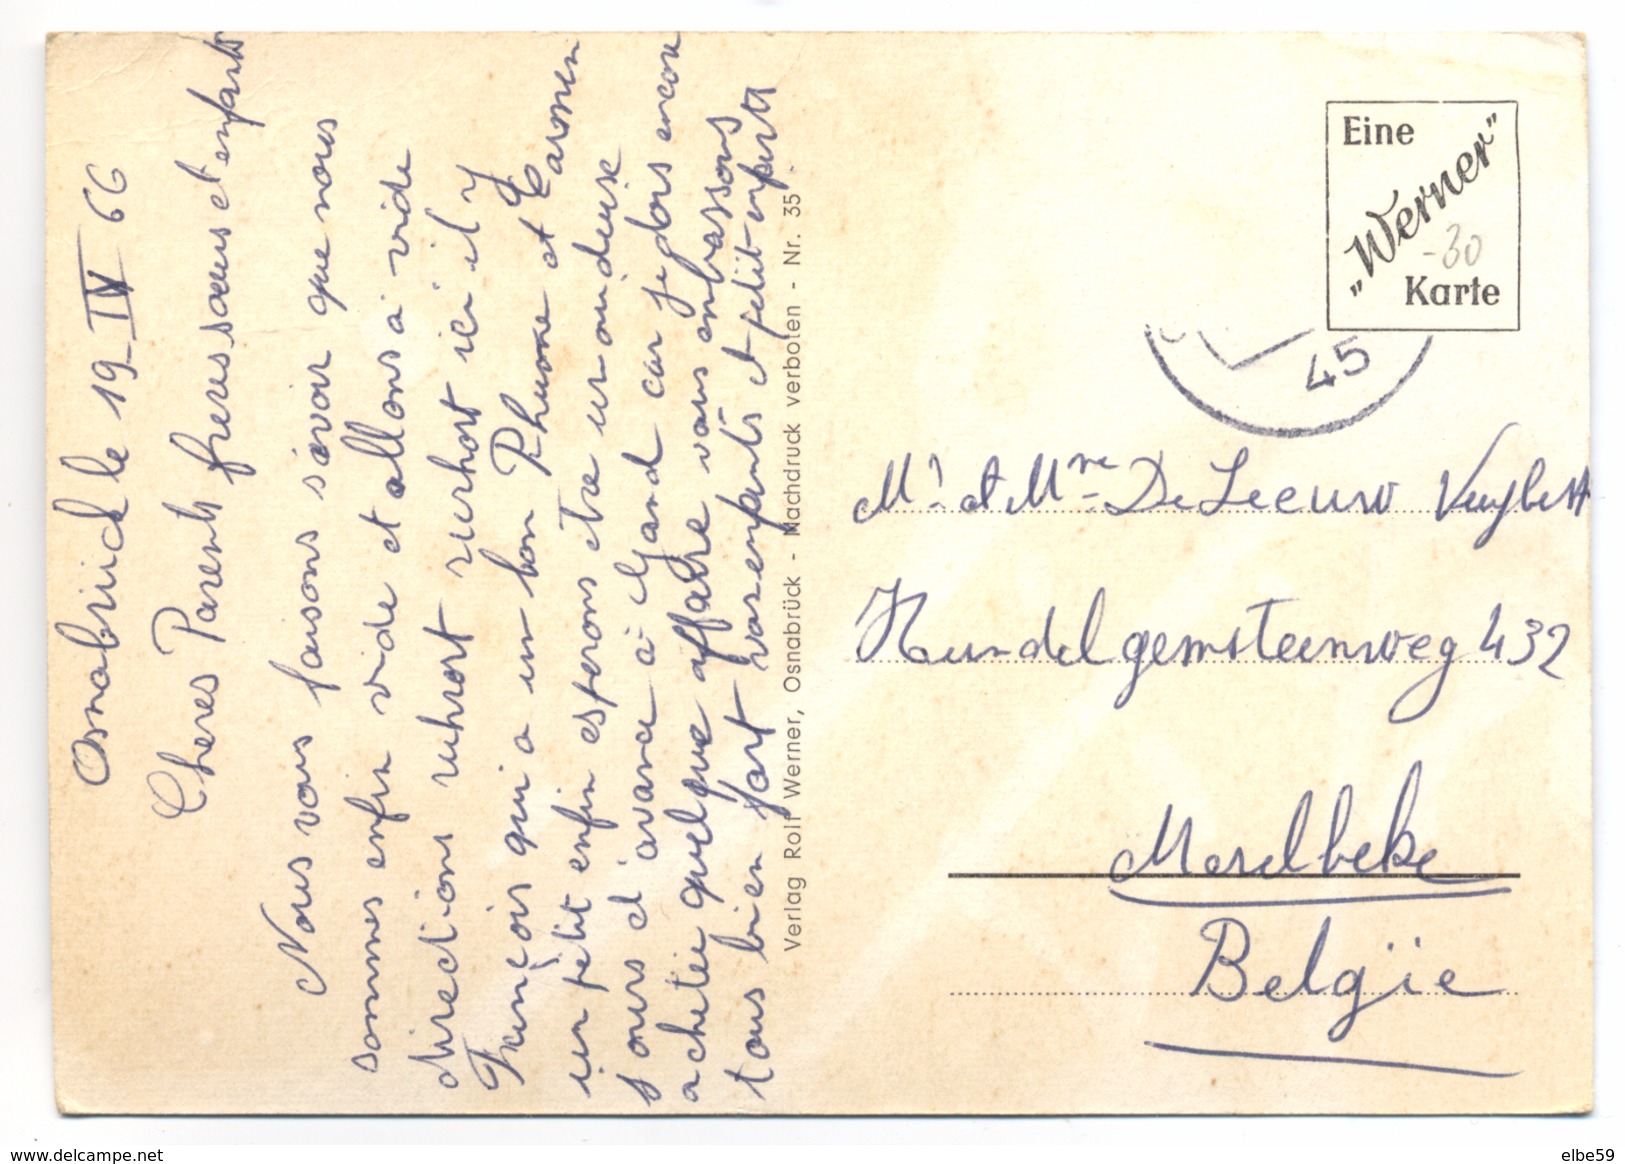 Osnabrück le 19-IV 66
Cheres Parents freres soeurs et enfants
Nous vous faisons savoir que nous
sommes enfin vide et allons à vide
directions ruhrort ruhrort ici il y
François qui a un bon Rhume et Carmen
un petit enfin esperons être un ou deux
jours d'avance à Gand car je dois encore
acheter quelque affaire vous enbrassons
tous bien fort vos enfants et petit-enfants
Verlag Rolf Werner, Osnabrück - Nachdruck verboten - Nr. 35
Eine
„Werner"
-30
Karte
45
Mr et Mme De Leeuw
Hundelgemsteenweg 432
Merelbeke
Belgïe
www.delcampe.net
elbe59